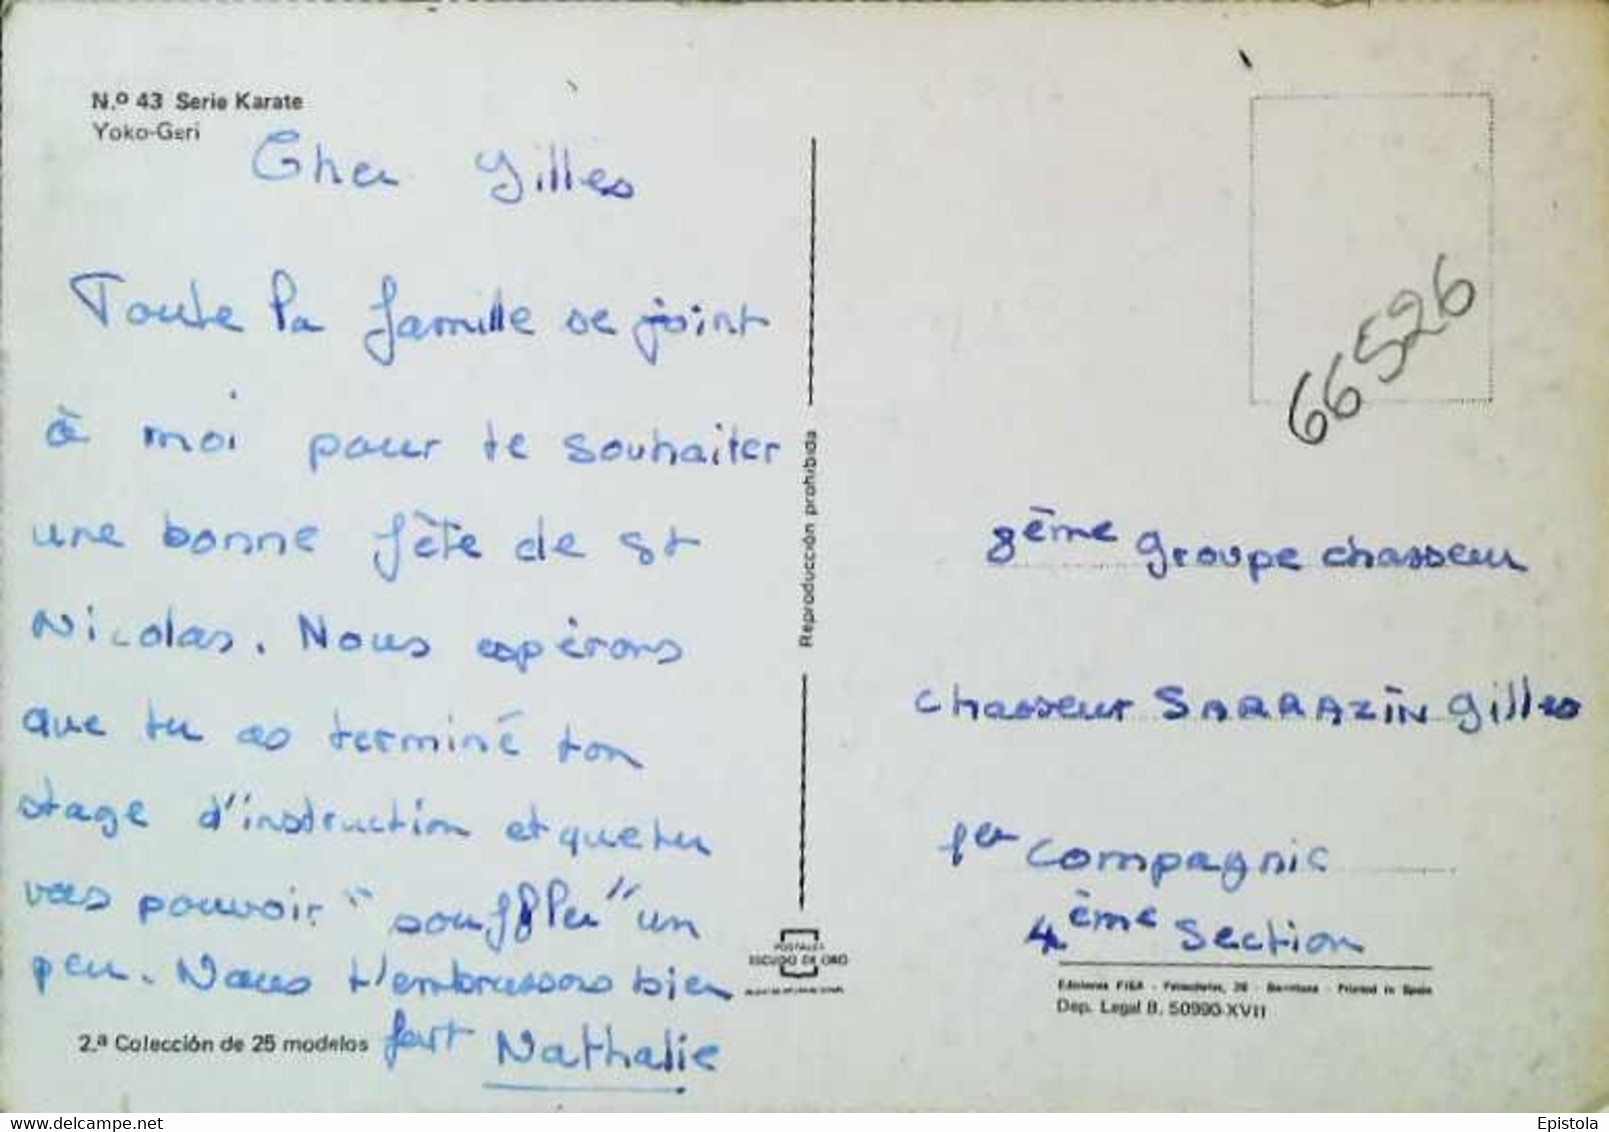 N.º 43 Serie Karate
Yoko-Geri
Cher Gilles
Toute la famille se joint
à moi pour te souhaiter
une bonne fête de St
Nicolas. Nous espérons
que tu as terminé ton
stage d'instruction et que tu
vas pouvoir "souffler" un
peu. Nous t'embrassons bien
fort Nathalie
2.ª Colección de 25 modelos
Reproducción prohibida
POSTALES
ESCUDO DE ORO
66526
8ème groupe chasseur
chasseur SARRAZIN gilles
1er compagnie
4ème section
Ediciones FISA - Barcelona - Printed in Spain
Dep. Legal B. 50990-XVII
delcampe.net
Epistola